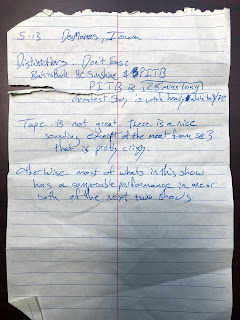 5-13 DesMoines, Iowa
Distinctions: Don't Ease
Sunshine & PITB
PITB is 28 mins long!
Greatest Story is quite heavy
Tape is not great there is a nice
sounding excerpt of the meat from set 3
that is pretty crispy.
Otherwise most of whats in this show
has a comparable performance in one or
both of the next two shows